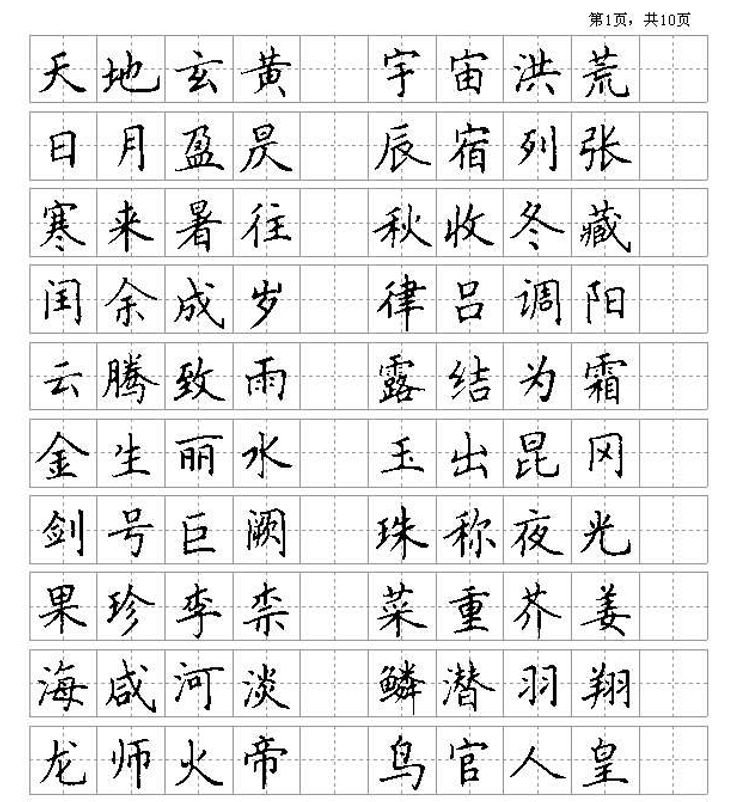 第1页，共10页
天地玄黄 宇宙洪荒
日月盈昃 辰宿列张
寒来暑往 秋收冬藏
闰余成岁 律吕调阳
云腾致雨 露结为霜
金生丽水 玉出昆冈
剑号巨阙 珠称夜光
果珍李柰 菜重芥姜
海咸河淡 鳞潜羽翔
龙师火帝 鸟官人皇